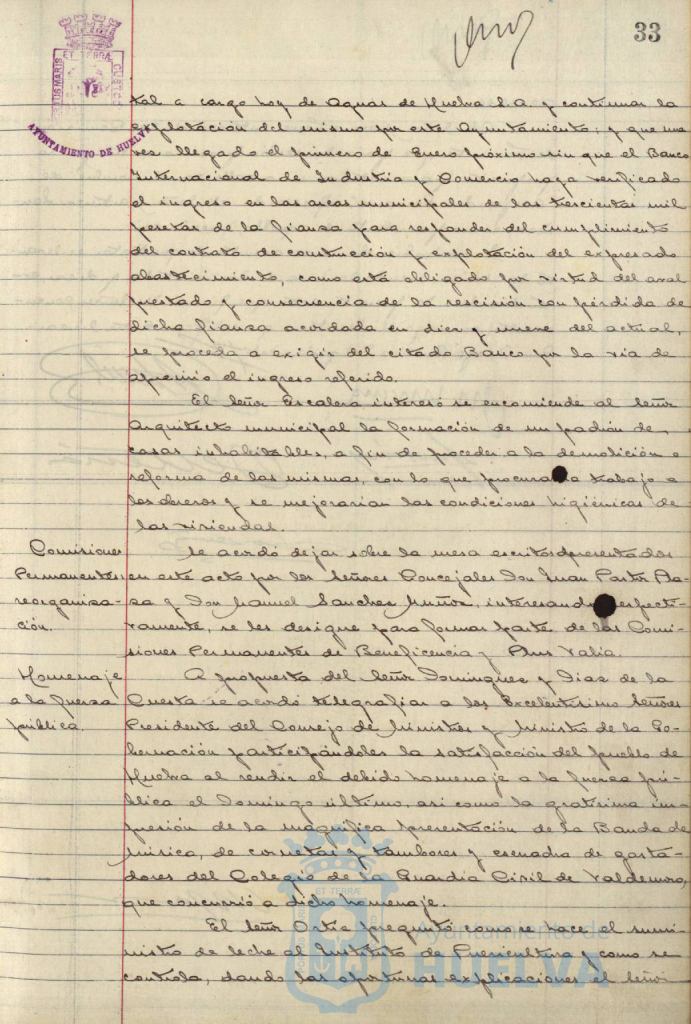 33
PORTUS MARIS ET TERRÆ CUSTODIA
AYUNTAMIENTO DE HUELVA
tal a cargo hoy de Aguas de Huelva S.A. y continuar la
explotación del mismo por este Ayuntamiento; y que una
vez llegado el primero de Enero próximo sin que el Banco
Internacional de Industria y Comercio haya verificado
el ingreso en las arcas municipales de las trescientas mil
pesetas de la fianza para responder del cumplimiento
del contrato de construcción y explotación del expresado
abastecimiento, como está obligado por virtud del aval
prestado y consecuencia de la rescisión con pérdida de
dicha fianza acordada en diez y nueve del actual,
se proceda a exigir del citado Banco por la vía de
apremio el ingreso referido.
El Señor Escalera interesó se encomiende al Señor
Arquitecto municipal la formación de un padrón de
casas inhabitables, a fin de proceder a la demolición o
reforma de las mismas, con lo que procura a trabajo a
los obreros y se mejorarían las condiciones higiénicas de
las viviendas.
Comisiones
Permanentes:
reorganiza-
ción.
Se acordó dejar sobre la mesa escritos presentados
en este acto por los Señores Concejales Don Juan Pastor Pla-
za y Don Manuel Sanchez Muñoz, interesando espectí-
vamente, se les designe para formar parte de las Comi-
siones Permanentes de Beneficencia y Plus Valía.
Homenaje
a la fuerza
pública.
A propuesta del Señor Dominguez y Diaz de la
Cuesta se acordó telegrafiar a los Excelentísimo Señores
Presidente del Consejo de Ministros y Ministro de la Go-
bernación participándoles la satisfacción del pueblo de
Huelva al rendir el debido homenaje a la fuerza pú-
blica el Domingo último, así como la gratísima im-
presión de la magnífica presentación de la Banda de
música, de cornetas y tambores y escuadra de gasta-
dores del Colegio de la Guardia Civil de Valdemoro,
que concurrió a dicho homenaje.
El Señor Ortiz preguntó como se hace el sumi-
nistro de leche al Instituto de Puericultura y como se
controla, dando las oportunas explicaciones el Señor
Ayuntamiento de
HUELVA